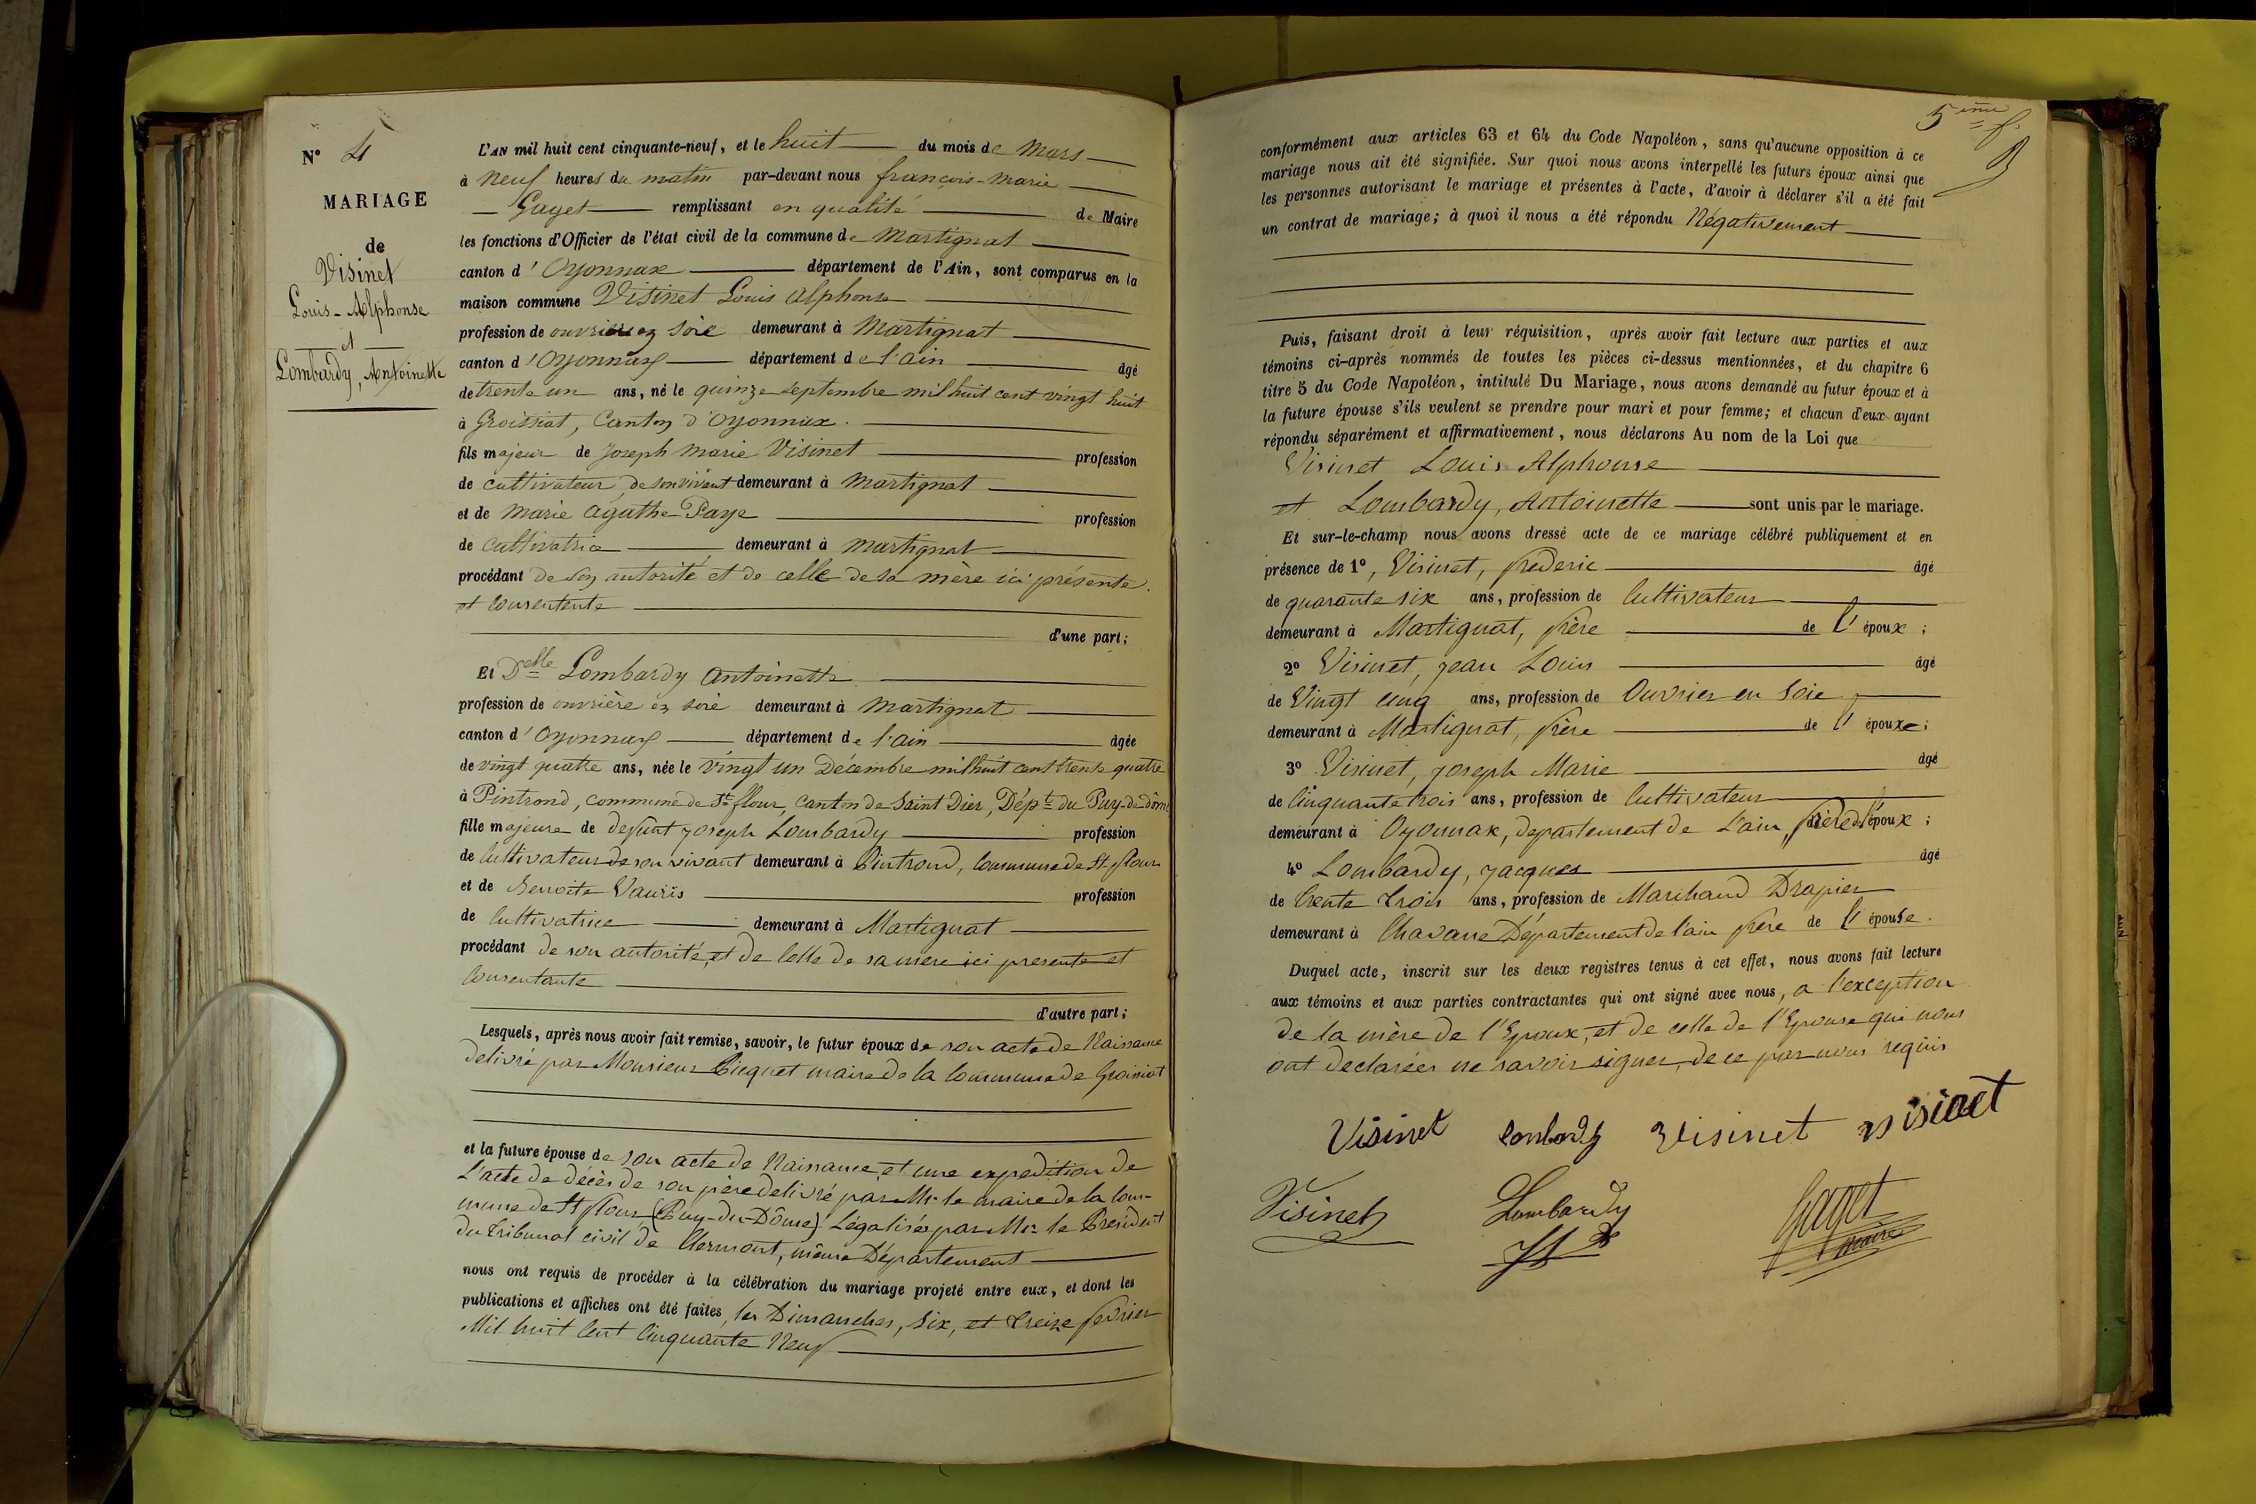 N° 4
MARIAGE
de
Visinet
Louis-Alphonse
et
Lombardy, Antoinette
L'AN mil huit cent cinquante-neuf, et le huit du mois de Mars
à neuf heures du matin par-devant nous françois-marie
Gaget remplissant en qualité de Maire
les fonctions d'Officier de l'état civil de la commune de Martignat
canton d'Oyonnax département de l'Ain, sont comparus en la
maison commune Visinet Louis Alphonse
profession de ouvrier en soie demeurant à Martignat
canton d'Oyonnax département de l'ain âgé
de trente un ans, né le quinze septembre mil huit cent vingt huit
à Groissiat, Canton d'Oyonnax.
fils majeur de Joseph Marie Visinet profession
de cultivateur, de son vivant demeurant à Martignat
et de Marie Agathe Paye profession
de cultivatrice demeurant à Martignat
procédant de son autorité et de celle de sa mère ici présente.
et Consentente
d'une part;
Et Delle Lombardy Antoinette
profession de ouvrière en soie demeurant à Martignat
canton d'Oyonnax département de l'ain âgée
de vingt quatre ans, née le vingt un Décembre mil huit cent trente quatre
à Pintrond, commune de St flour, Canton de Saint Dier, Dépte du Puy-de-dôme
fille majeure de defunt Joseph Lombardy profession
de Cultivateur de son vivant demeurant à Pintrond, Commune de St flour
et de Benoite Vauris profession
de Cultivatrice demeurant à Martignat
procédant de son autorité, et de Celle de sa mère ici presente et
Consentante
d'autre part;
Lesquels, après nous avoir fait remise, savoir, le futur époux de son acte de Naissance
delivré par Monsieur Picquet maire de la Commune de Groissiat
et la future épouse de son acte de Naissance, et une expedition de
L'acte de décès de son père delivré par Mr le maire de la Com-
mune de St flour (Puy-du-Dôme). Légalisés par Mr le President
du Tribunal civil de Clermont, même Département
nous ont requis de procéder à la célébration du mariage projeté entre eux, et dont les
publications et affiches ont été faites les Dimanches, six, et treize fevrier
Mil huit Cent Cinquante Neuf
5ème f.
conformément aux articles 63 et 64 du Code Napoléon, sans qu'aucune opposition à ce
mariage nous ait été signifiée. Sur quoi nous avons interpellé les futurs époux ainsi que
les personnes autorisant le mariage et présentes à l'acte, d'avoir à déclarer s'il a été fait
un contrat de mariage; à quoi il nous a été répondu Négativement
Puis, faisant droit à leur réquisition, après avoir fait lecture aux parties et aux
témoins ci-après nommés de toutes les pièces ci-dessus mentionnées, et du chapitre 6
titre 5 du Code Napoléon, intitulé Du Mariage, nous avons demandé au futur époux et à
la future épouse s'ils veulent se prendre pour mari et pour femme; et chacun d'eux ayant
répondu séparément et affirmativement, nous déclarons Au nom de la Loi que
Visinet Louis Alphonse
et Lombardy, Antoinette sont unis par le mariage.
Et sur-le-champ nous avons dressé acte de ce mariage célébré publiquement et en
présence de 1°, Visinet, frederic âgé
de quarante six ans, profession de Cultivateur
demeurant à Martignat, frère de l'époux;
2° Visinet, Jean Louis âgé
de Vingt cinq ans, profession de Ouvrier en Soie
demeurant à Martignat, frère de l'époux;
3° Visinet, Joseph Marie âgé
de Cinquante trois ans, profession de Cultivateur
demeurant à Oyonnax, departement de L'ain, frère de l'époux;
4° Lombardy, Jacques âgé
de trente trois ans, profession de Marchand Drapier
demeurant à Chavane Département de l'ain frère de l'épouse.
Duquel acte, inscrit sur les deux registres tenus à cet effet, nous avons fait lecture
aux témoins et aux parties contractantes qui ont signé avec nous, a l'exception
de la mère de l'Epoux, et de celle de l'Epouse qui nous
ont declarées ne savoir signer, de ce par nous requis
Visinet Lombardy Visinet Visinet
Visinet Lombardy Gaget
maire